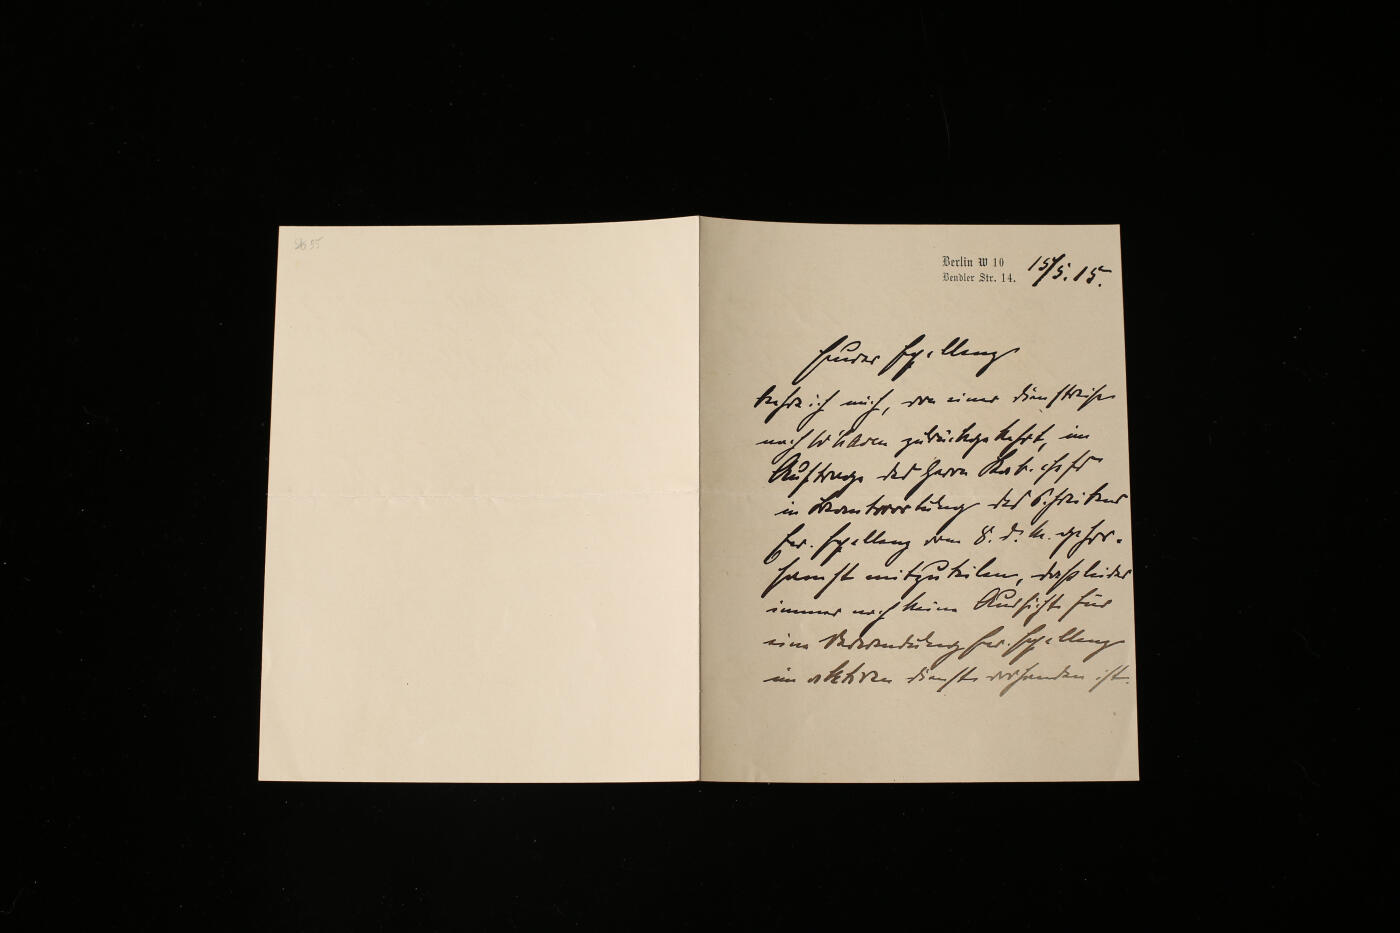 Berlin W 10
Bendler Str. 14.
15/5. 15.
Euerer Exzellenz
beehre ich mich, von einer Dienstreise
nach Wilna zurückgekehrt, im
Auftrage des Herrn
in Beantwortung des Schreibens
Ew. Exzellenz vom 8. d. M. gehor-
samst mitzuteilen, daß leider
immer noch keine Aussicht für
eine Verwendung Ew. Exzellenz
im aktiven Dienste vorhanden ist.